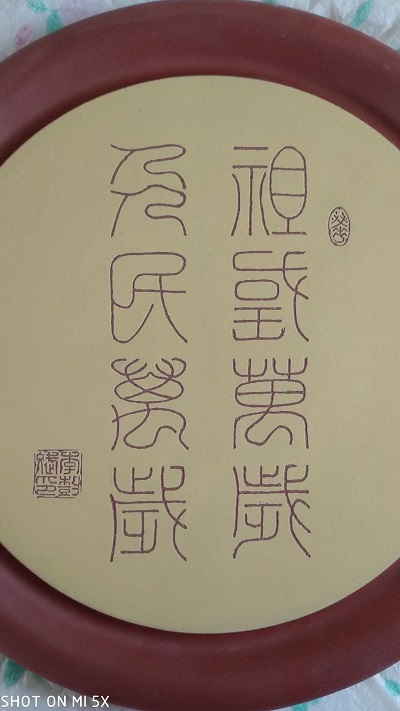 祖國萬歲
人民萬歲
SHOT ON MI 5X